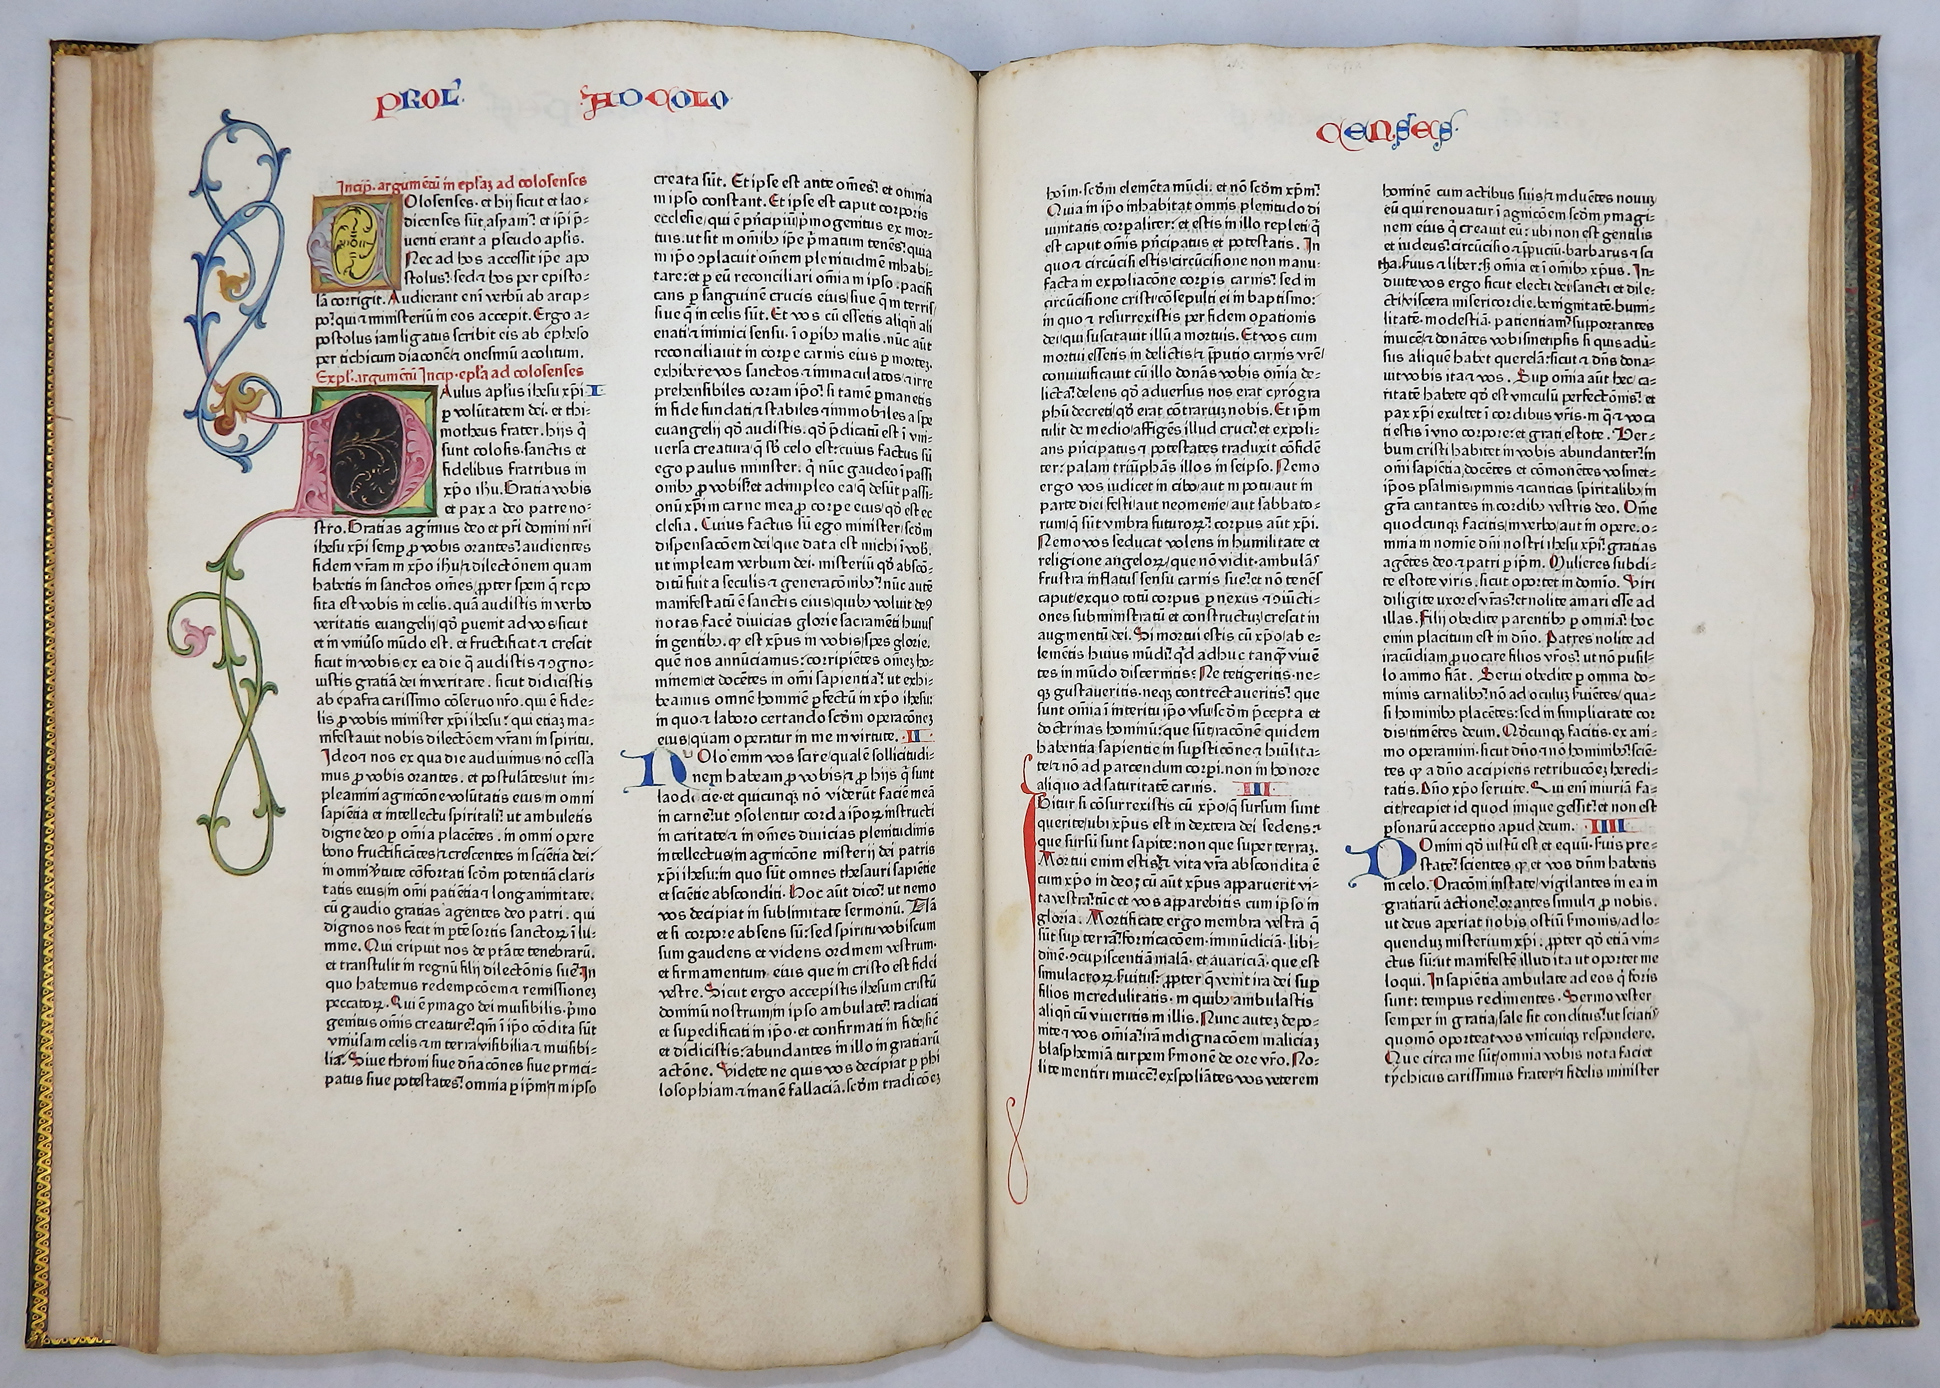 PROL. AD COLO
Incip. argumētū in epłaʒ ad colosenses
Colosenses. et hij sicut et lao-
dicenses sūt asyani. et ip̄i p̄-
uenti erant a pseudo apłis.
Nec ad hos accessit ip̄e apo
stolus: sed et hos per episto-
lā corrigit. Audierant enī verbū ab arcip-
po: qui et ministeriū in eos accepit. Ergo a-
postolus iam ligatus scribit eis ab epheso
per tichicum diaconē et onesimū acolitum.
Expł. argumētū Incip. epła ad colosenses
Paulus apłus ihesu xp̄i I
p voluntatem dei. et thi-
motheus frater. hijs q̄
sunt colosis. sanctis et
fidelibus fratribus in
xp̄o ihu. Gratia vobis
et pax a deo patre no-
stro. Gratias agimus deo et pr̄i domini nr̄i
ihesu xp̄i semp p vobis orantes: audientes
fidem vr̄am in xp̄o ihu et dilectōnem quam
habetis in sanctos om̄es, ꝓpter spem q̄ repo
sita est vobis in celis. quā audistis in verbo
veritatis euangelij, qd̄ ꝑuenit ad vos sicut
et in vniuerso mūdo est. et fructificat et crescit
sicut in vobis, ex ea die q̄ audistis et ꝯgno-
uistis gratiā dei in veritate. sicut didicistis
ab epafra carissimo cōseruo nr̄o. qui ē fide-
lis ꝓ vobis minister xp̄i ihesu: qui etiaʒ ma-
nifestauit nobis dilectōem vr̄am in spiritu.
Ideo et nos ex qua die audiuimus, nō cessa
mus ꝓ vobis orantes. et postulātes, ut im-
pleamini agnicōne volūtatis eius in omni
sapiētia et intellectu spiritali: ut ambuletis
digne deo ꝑ om̄ia placētes. in omni opere
bono fructificātes, et crescentes in scīetia dei:
in omni v̄tute cōfortati scd̄m potentiā clari-
tatis eius, in om̄i patiētia et longanimitate.
cū gaudio gratias agentes deo patri. qui
dignos nos fecit in ꝑtē sortis sanctoꝝ ī lu-
mine. Qui eripuit nos de ptāte tenebrarū.
et transtulit in regnū filij dilectōnis sue: In
quo habemus redempcōem et remissioneʒ
peccatoꝝ. Qui ē ymago dei inuisibilis. p̄mo
genitus om̄is creature: qm̄ ī ip̄o cōdita sūt
vniūsa in celis et in terra visibilia et inuisibi-
lia. Siue throni siue dn̄acōnes siue princi-
patus siue potestates: omnia ꝑ ip̄m et in ipso
creata sūt. Et ipse est ante om̄es: et omnia
in ipso constant. Et ipse est caput corporis
ecclesie, qui ē p̄ncipiū, p̄mogenitus ex mor-
tuis. ut sit in om̄ibꝰ ip̄e p̄matum tenēs: quia
in ip̄o ꝯplacuit om̄em plenitudinē inhabi-
tare: et ꝑ eū reconciliari om̄ia in ipso. pacifi
cans ꝑ sanguinē crucis eius, siue q̄ in terris
siue q̄ in celis sūt. Et vos cū essetis aliqn̄ ali
enati et inimici sensu. ī oꝑibꝰ malis. nūc aūt
reconciliauit in corpe carnis eius ꝑ morteʒ.
exhibere vos sanctos et immaculatos et irre
prehensibiles coram ip̄o: si tamē ꝑmanetis
in fide fundati et stabiles et immobiles a spe
euangelij qd̄ audistis. qd̄ p̄dicatū est ī vni-
uersa creatura q̄ sb̄ celo est: cuius factus sū
ego paulus minister. q̄ nūc gaudeo ī passi
onibꝰ ꝓ vobis: et adimpleo ea q̄ desūt passi-
onū xp̄i in carne mea ꝓ corpe eius, qd̄ est ec
clesia. Cuius factus sū ego minister, scd̄m
dispensacōem dei, que data est michi ī vob.
ut impleam verbum dei. misteriū qd̄ abscō-
ditū fuit a seculis et generacōnibꝰ: nūc autē
manifestatū ē sanctis eius, quibꝰ voluit deꝰ
notas facē diuicias glorie sacramēti huius
in gentibꝰ. qd̄ est xp̄us in vobis, spes glorie.
quē nos annūciamus: corripiētes om̄eʒ ho-
minem et docētes in om̄i sapientia: ut exhi-
beamus omnē hominē ꝑfectū in xp̄o ihesu:
in quo et laboro certando scd̄m operacōneʒ
eius, quam operatur in me in virtute. II
Volo enim vos scire, qualē sollicitudi-
nem habeam ꝓ vobis, et ꝓ hijs q̄ sunt
laodicie. et quicunqꝫ nō viderūt faciē meā
in carne: ut ꝯsolentur corda ip̄oꝝ instructi
in caritate et in om̄es diuicias plenitudinis
intellectus, in agnicōne misterij dei patris
xp̄i ihesu: in quo sūt omnes thesauri sapiētie
et sciētie absconditi. Hoc aūt dico: ut nemo
vos decipiat in sublimitate sermonū. Nā
et si corpore absens sū: sed spiritu vobiscum
sum gaudens et videns ordinem vestrum.
et firmamentum eius que in cristo est fidei
vestre. Sicut ergo accepistis ihesum cristū
dominū nostrum, in ipso ambulate: radicati
et supedificati in ip̄o. et confirmati in fide, sic̄
et didicistis: abundantes in illo in gratiarū
actōne. Videte ne quis vos decipiat ꝑ phi
losophiam. et inanē fallaciā. scd̄m tradicōeʒ
CENSES
hoīm. scd̄m elemēta mūdi. et nō scd̄m xp̄m:
Quia in ip̄o inhabitat omnis plenitudo di
uinitatis corꝑaliter: et estis in illo repleti, q̄
est caput om̄is p̄ncipatus et potestatis. In
quo et circūcisi estis, circūcisione non manu-
facta in expoliacōne corꝑis carnis: sed in
circūcisione cristi: cōsepulti ei in baptismo:
in quo et resurrexistis per fidem oꝑationis
dei, qui suscitauit illū a mortuis. Et vos cum
mortui essetis in delictis, et p̄putio carnis vr̄e,
conuiuificauit cū illo donās vobis om̄ia de-
licta: delens qd̄ aduersus nos erat cyrogra
phū decreti, qd̄ erat cōtrariuʒ nobis. Et ip̄m
tulit de medio, affigēs illud cruci: et expoli-
ans p̄ncipatus et potestates traduxit cōfidē
ter: palam triūphās illos in seipso. Nemo
ergo vos iudicet in cibo, aut in potu, aut in
parte diei festi, aut neomenie, aut sabbato-
rum, q̄ sūt vmbra futuroꝝ: corpus aūt xp̄i.
Nemo vos seducat volens in humilitate et
religione angeloꝝ, que nō vidit. ambulās
frustra inflatus sensu carnis sue: et nō tenēs
caput, ex quo totū corpus ꝑ nexus et ꝯiūcti-
ones subministratū et constructuʒ crescit in
augmentū dei. Si mortui estis cū xp̄o, ab e-
lemētis huius mūdi: qd̄ adhuc tanq̄ viuē
tes in mūdo discernitis: Ne tetigeritis. ne-
qꝫ gustaueritis. neqꝫ contrectaueritis: que
sunt om̄ia ī interitū ip̄o vsu, scd̄m p̄cepta et
doctrinas hominū: que sūt racōnē quidem
habentia sapientie in suꝑsticōne et hūilita-
te: et nō ad parcendum corꝑi. non in honore
aliquo ad saturitatē carnis. III
Igitur si cōsurrexistis cū xp̄o, q̄ sursum sunt
querite, ubi xp̄us est in dextera dei sedens:
que sursū sunt sapite: non que super terraʒ.
Mortui enim estis, et vita vr̄a abscondita ē
cum xp̄o in deo: cū aūt xp̄us apparuerit vi-
ta vestra: tūc et vos apparebitis cum ipso in
gloria. Mortificate ergo membra vestra q̄
sūt suꝑ terrā: fornicacōem. immūdiciā. libi-
dinē. ꝯcupiscentiā malā. et auariciā. que est
simulacroꝝ ẜuitus: ꝓpter q̄ venit ira dei suꝑ
filios incredulitatis. in quibꝰ et vos ambulastis
aliqn̄ cū viueritis in illis. Nunc auteʒ depo-
nite et vos om̄ia: irā indignacōem maliciaʒ
blasphemiā turpem ẜmonē de ore vr̄o. No-
lite mentiri inuicē: exspoliātes vos veterem
hominē cum actibus suis, et induētes nouuʒ
eū qui renouatur ī agnicōem scd̄m ymagi-
nem eius q̄ creauit eū: ubi non est gentilis
et iudeus: circūcisio et ꝓpuciū. barbarus et sci
tha. ẜuus et liber: sꝫ om̄ia et ī om̄ibꝰ xp̄us. In-
duite vos ergo sicut electi dei, sancti et dile-
cti, viscera misericordie. benignitatē. humi-
litatē. modestiā. patientiam: supportantes
inuicē, et donātes vobismetip̄sis si quis adū-
sus aliquē habet querelā: sicut et dn̄s dona-
uit vobis ita et vos. Suꝑ om̄ia aūt hec, ca-
ritatē habete qd̄ est vinculū perfectōnis: et
pax xp̄i exultet ī cordibus vr̄is. in q̄ et voca
ti estis ī vno corpore: et grati estote. Ver-
bum cristi habitet in vobis abundanter: in
om̄i sapiētia, docētes et cōmonētes vosmet-
ip̄os psalmis, ymnis et canticis spiritalibꝰ, in
gr̄a cantantes in cordibꝰ vestris deo. Om̄e
quodcunqꝫ facitis, in verbo, aut in opere. o-
mnia in nomie dn̄i nostri ihesu xp̄i: gratias
agētes deo, et patri ꝑ ip̄m. Mulieres subdi-
te estote viris. sicut oportet in domīo. Viri
diligite uxores vr̄as: et nolite amari esse ad
illas. Filij obedite parentibꝰ ꝑ omnia: hoc
enim placitum est in dn̄o. Patres nolite ad
iracūdiam ꝓuocare filios vr̄os: ut nō pusil-
lo animo fiāt. Serui obedite ꝑ omnia do-
minis carnalibꝰ: nō ad oculuʒ ẜuiētes, qua-
si hominibꝰ placētes: sed in simplicitate cor
dis: timētes deum. Qd̄cunqꝫ facitis. ex ani-
mo operamini. sicut dn̄o, et nō hominibꝰ: sciē-
tes qꝫ a dn̄o accipietis retribucōeʒ heredi-
tatis. Dn̄o xp̄o seruite. Qui enī iniuriā fa-
cit, recipiet id quod inique gessit: et non est
ꝑsonarū acceptio apud deum. IIII
Domini qd̄ iustū est et equū. ẜuis pre-
state: scientes qꝫ et vos dn̄m habetis
in celo. Oracōni instate, vigilantes in ea in
gratiarū actione: orantes simul et ꝓ nobis.
ut deus aperiat nobis ostiū ẜmonis, ad lo-
quenduʒ misterium xp̄i. ꝓpter qd̄ etiā vin-
ctus sū: ut manifestē illud ita ut oportet me
loqui. In sapiētia ambulate ad eos q̄ foris
sunt: tempus redimentes. Sermo vester
semper in gratia, sale sit conditus: ut sciatis
quomō oporteat vos vnicuiqꝫ respondere.
Que circa me sūt, omnia vobis nota faciet
tychicus carissimus frater et fidelis minister